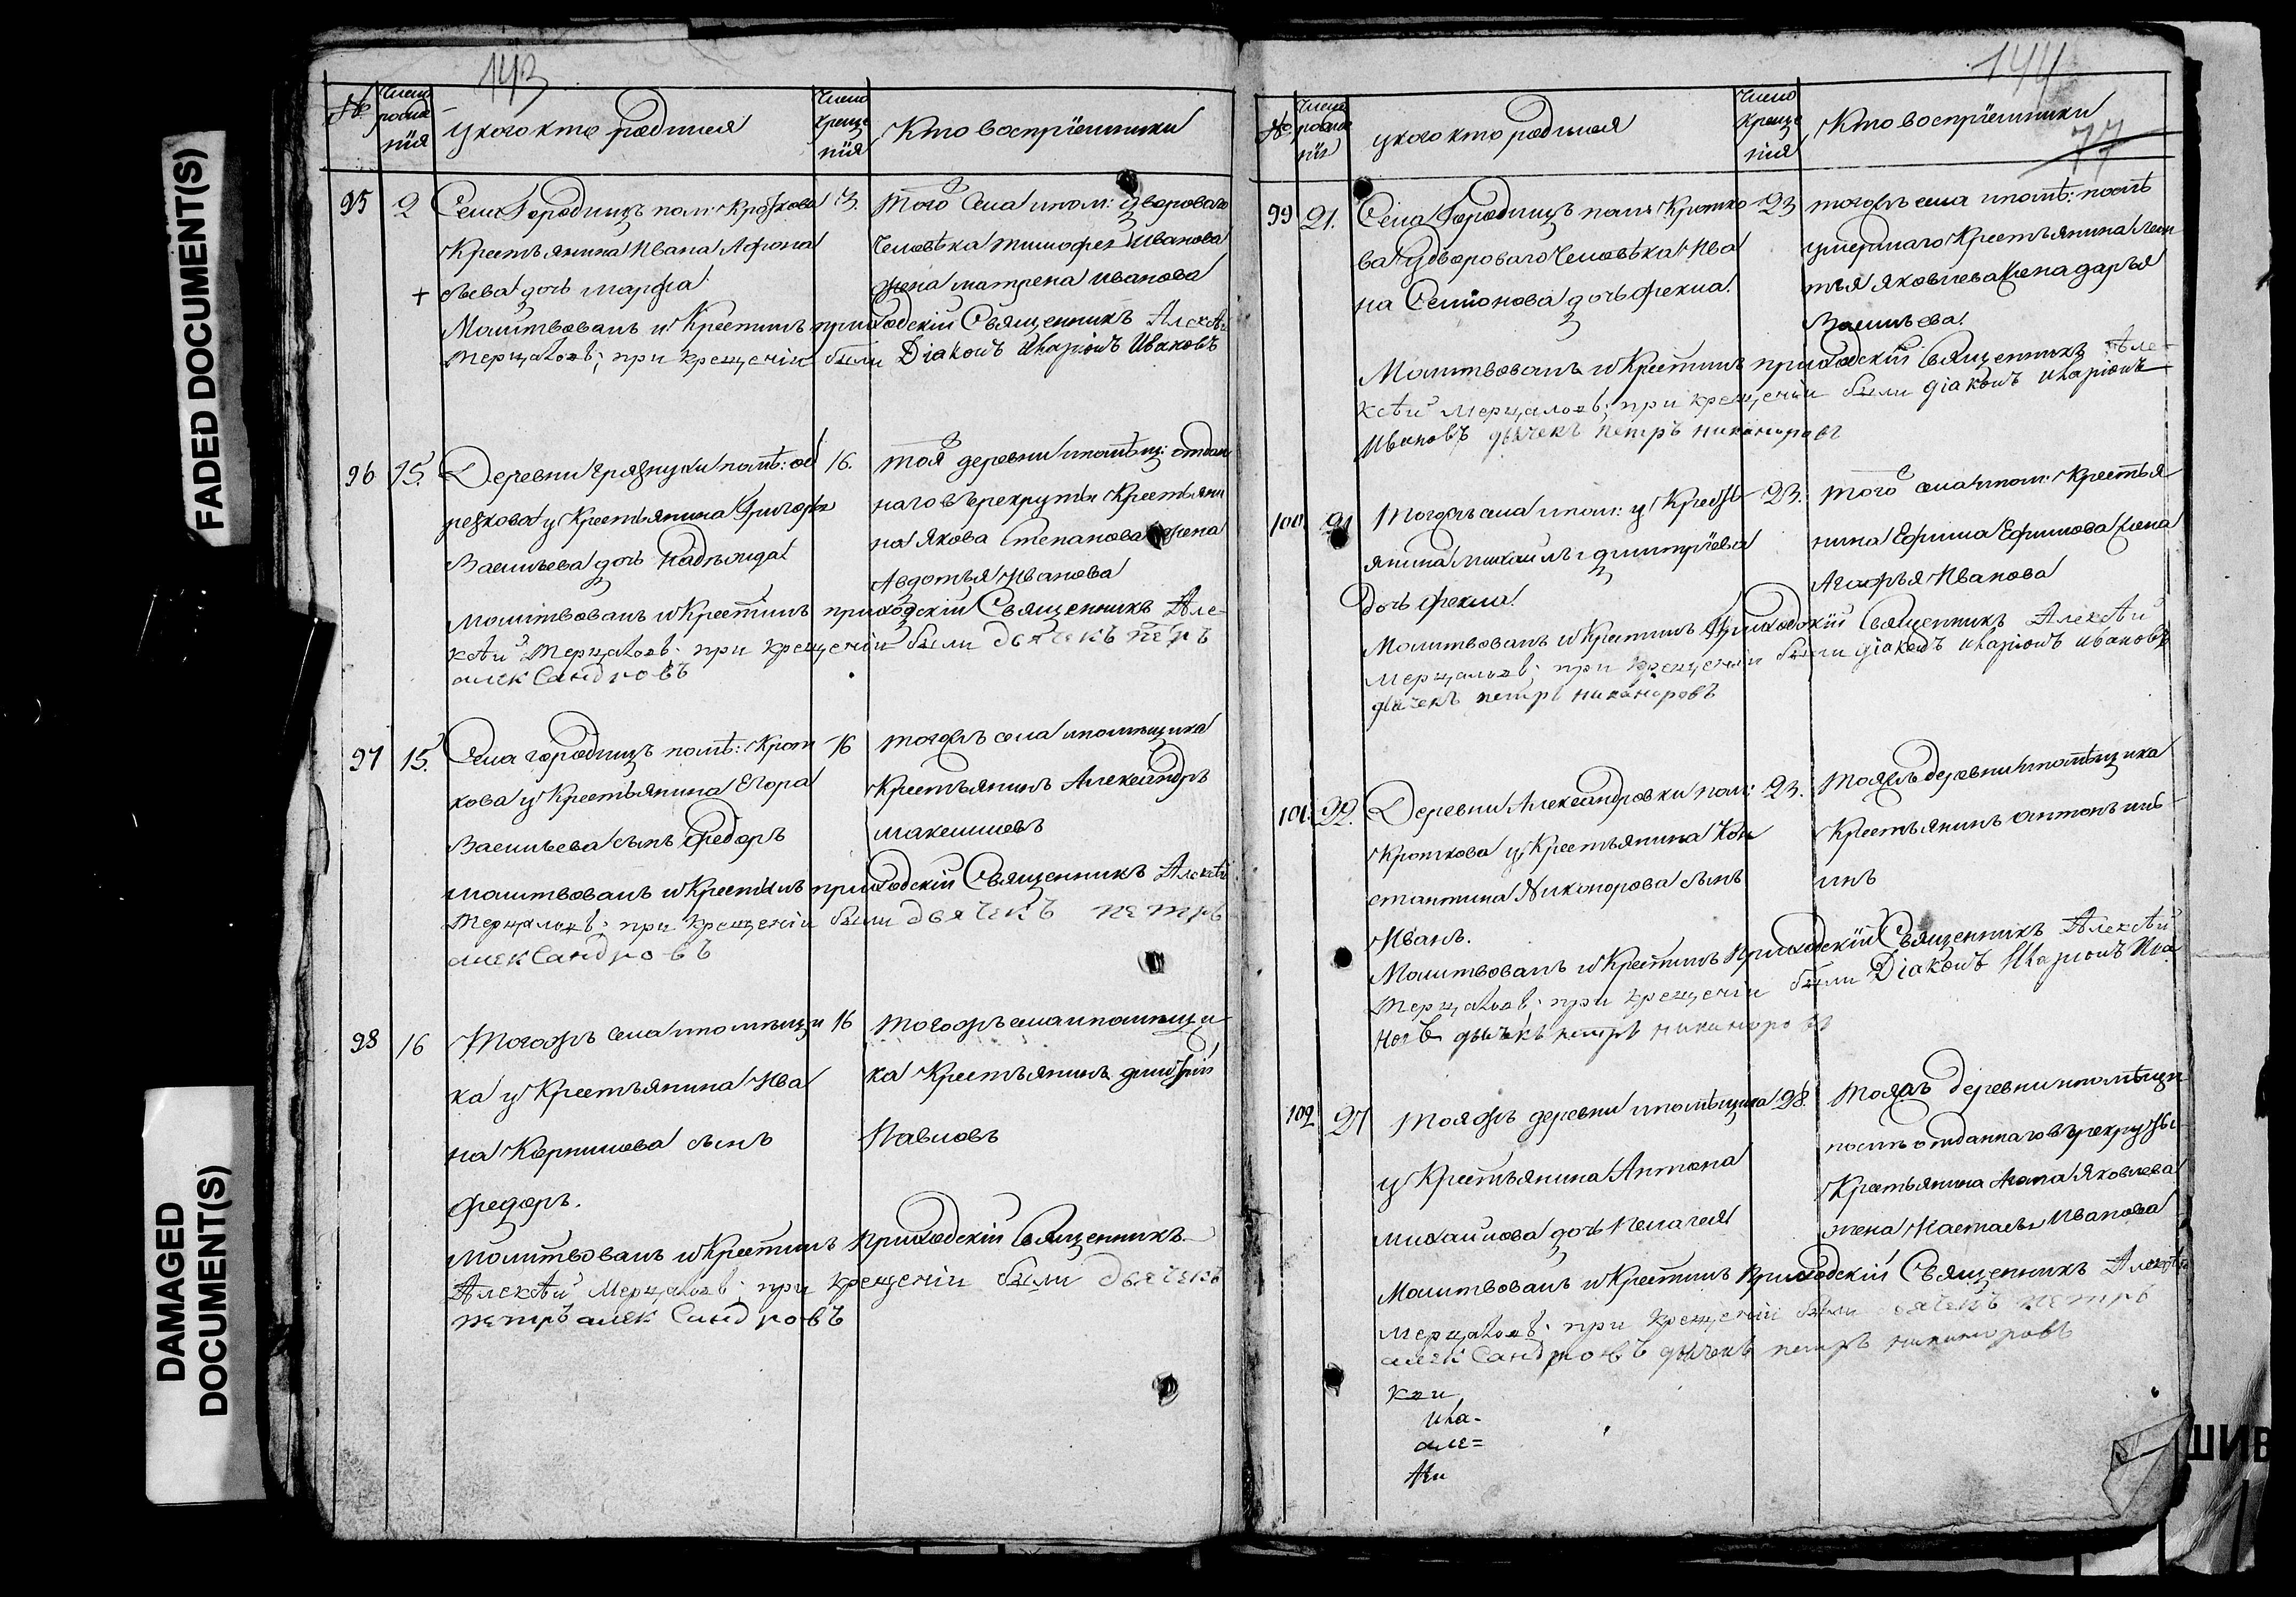 FADED DOCUMENT(S)
DAMAGED
DOCUMENT(S)
143
№
Число рожде нія
У кого кто родился
Число креще нія
Кто воспріемники
95 2 Села Городищъ пом: Кроткова 3.
Крестьянина Ивана Афона
сьева дочь марфа
того села ипом: дворовато
человѣка тимофея Иванова
жена матрена иванова
Молитвовалъ и Крестилъ приходскій Священникъ Алексѣй
Мерцаловъ; при крещеніи были Діаконъ Иларіонъ Ивановъ
96 15. Деревни грязнухи помѣ:
у Крестьянина Григорья
Васильева дочь надѣжда
16. тоя деревни ипомѣщ: отдан
наго въ рекруты Крестьяни
на Якова Степанова жена
Авдотья Иванова
молитвовалъ и Крестилъ приходскій Священникъ Але-
ксѣй Мерцаловъ; при крещеніи были дьячекъ петръ
алекСандровъ
97 15. Села городищъ помѣ: Крот
кова у Крестьянина Егора
Васильева сынъ федоръ
16 тогожъ села ипомѣщика
Крестьянинъ Александръ
макسимовъ
молитвовалъ и Крестилъ приходскій Священникъ Алексѣй
Мерцаловъ; при крещеніи были дьячекъ петръ
алекСандровъ
98 16 Тогожъ села ипомѣщи
ка у Крестьянина Ива
на Корнилова сынъ
федоръ.
16 тогожъ села ипомѣщи
ка Крестьянинъ
Павловъ
молитвовалъ и Крестилъ Приходскій Священникъ
Алексѣй Мерцаловъ; при крещеніи были дьячекъ
петръ алекСандровъ
144
77
№
Число рожде нія
У кого кто родился
Число креще нія
Кто воспріемники
99 21. Села Городищъ пом: Кротко
ва у дворового человѣка Ива
на Семіонова дочь фекла.
23 тогожъ села ипомѣ: послѣ
умершаго Крестьянина
Яковлева жена дарья
Васильева.
Молитвовалъ и Крестилъ приходскій Священникъ Але-
ксѣй Мерцаловъ; при крещеніи были діаконъ иларіонъ
Ивановъ дьячекъ петръ никаноровъ
100 21 Тогожъ села ипом: у Кресть
янина михаилы димитріева
дочь фекла.
23. того села ипом: Крестья
нина Ефима Ефимова жена
Агафья Иванова
Молитвовалъ и Крестилъ Приходскій Священникъ Алексѣй
Мерцаловъ; при крещеніи были діаконъ иларіонъ ивановъ
дьячекъ петръ никаноровъ
101. 22. Деревни Александровки пом:
Кроткова у Крестьянина Кон
стантина Никонорова сынъ
Иванъ.
23. Тояжъ деревни ипомѣщика
Крестьянинъ антонъ
инъ
Молитвовалъ и Крестилъ Приходскій Священникъ Алексѣй
Мерцаловъ; при крещеніи были Діаконъ Иларіонъ Ива
новъ дьячекъ петръ никаноровъ
102 27 Тояжъ деревни ипомѣщика
у Крестьянина Антона
михайлова дочь пелагея
28. Тояжъ деревни ипомѣщи
послѣ отданнаго въ рекруты
Крестьянина Яковлева
жена Настасья Иванова
Молитвовалъ и Крестилъ Приходскій Священникъ Алексѣй
Мерцаловъ; при крещеніи были дьячекъ петръ
алекСандровъ дьячекъ петръ никаноровъ
Ила-
але=
ШИВ